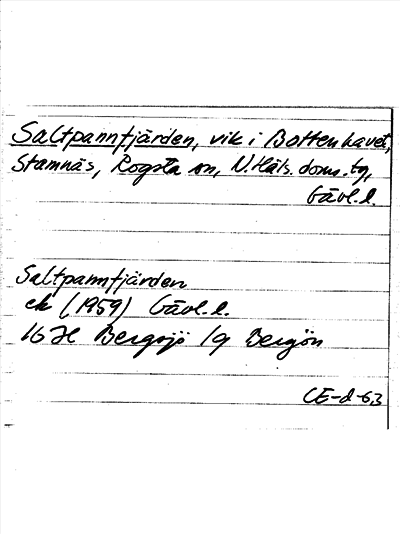 Saltpannfjärden, vik i Bottenhavet,
Stamnäs, Rogsta sn, N. Häls. doms. tg,
Gävl. l.
Saltpannfjärden
ek (1959) Gävl. l.
16 H Bergsjö / 9 Bergön
CE-d-63